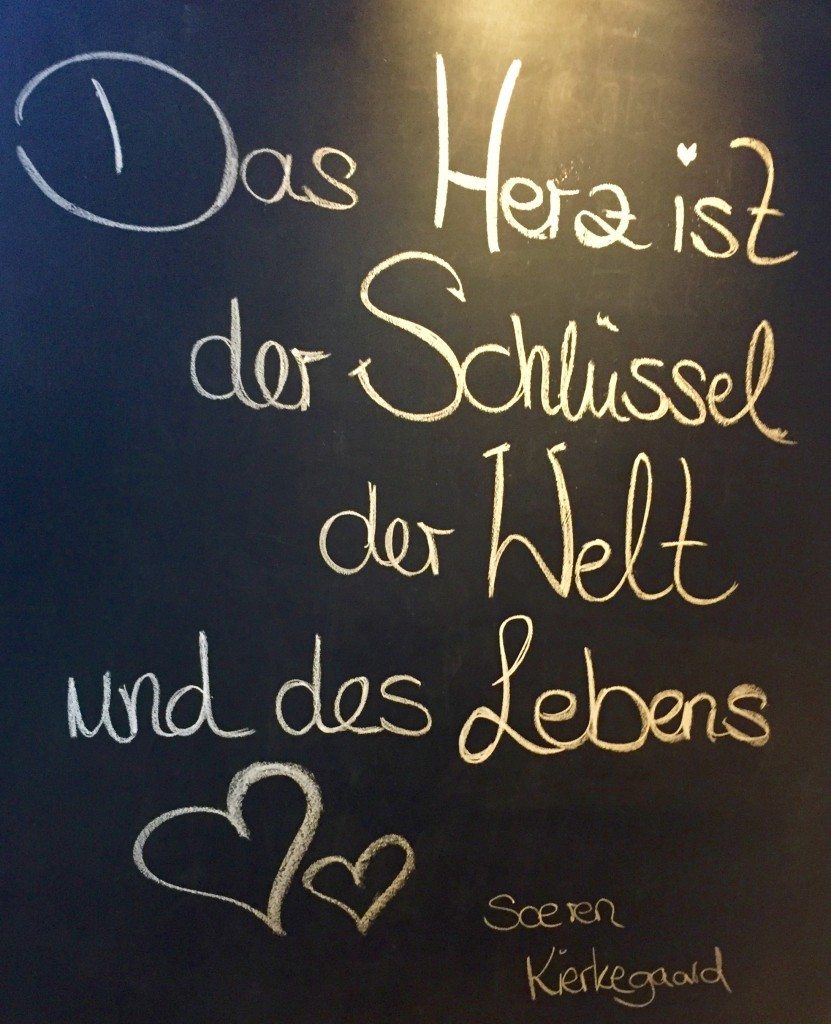 Das Herz ist
der Schlüssel
der Welt
und des Lebens
Soeren
Kierkegaard